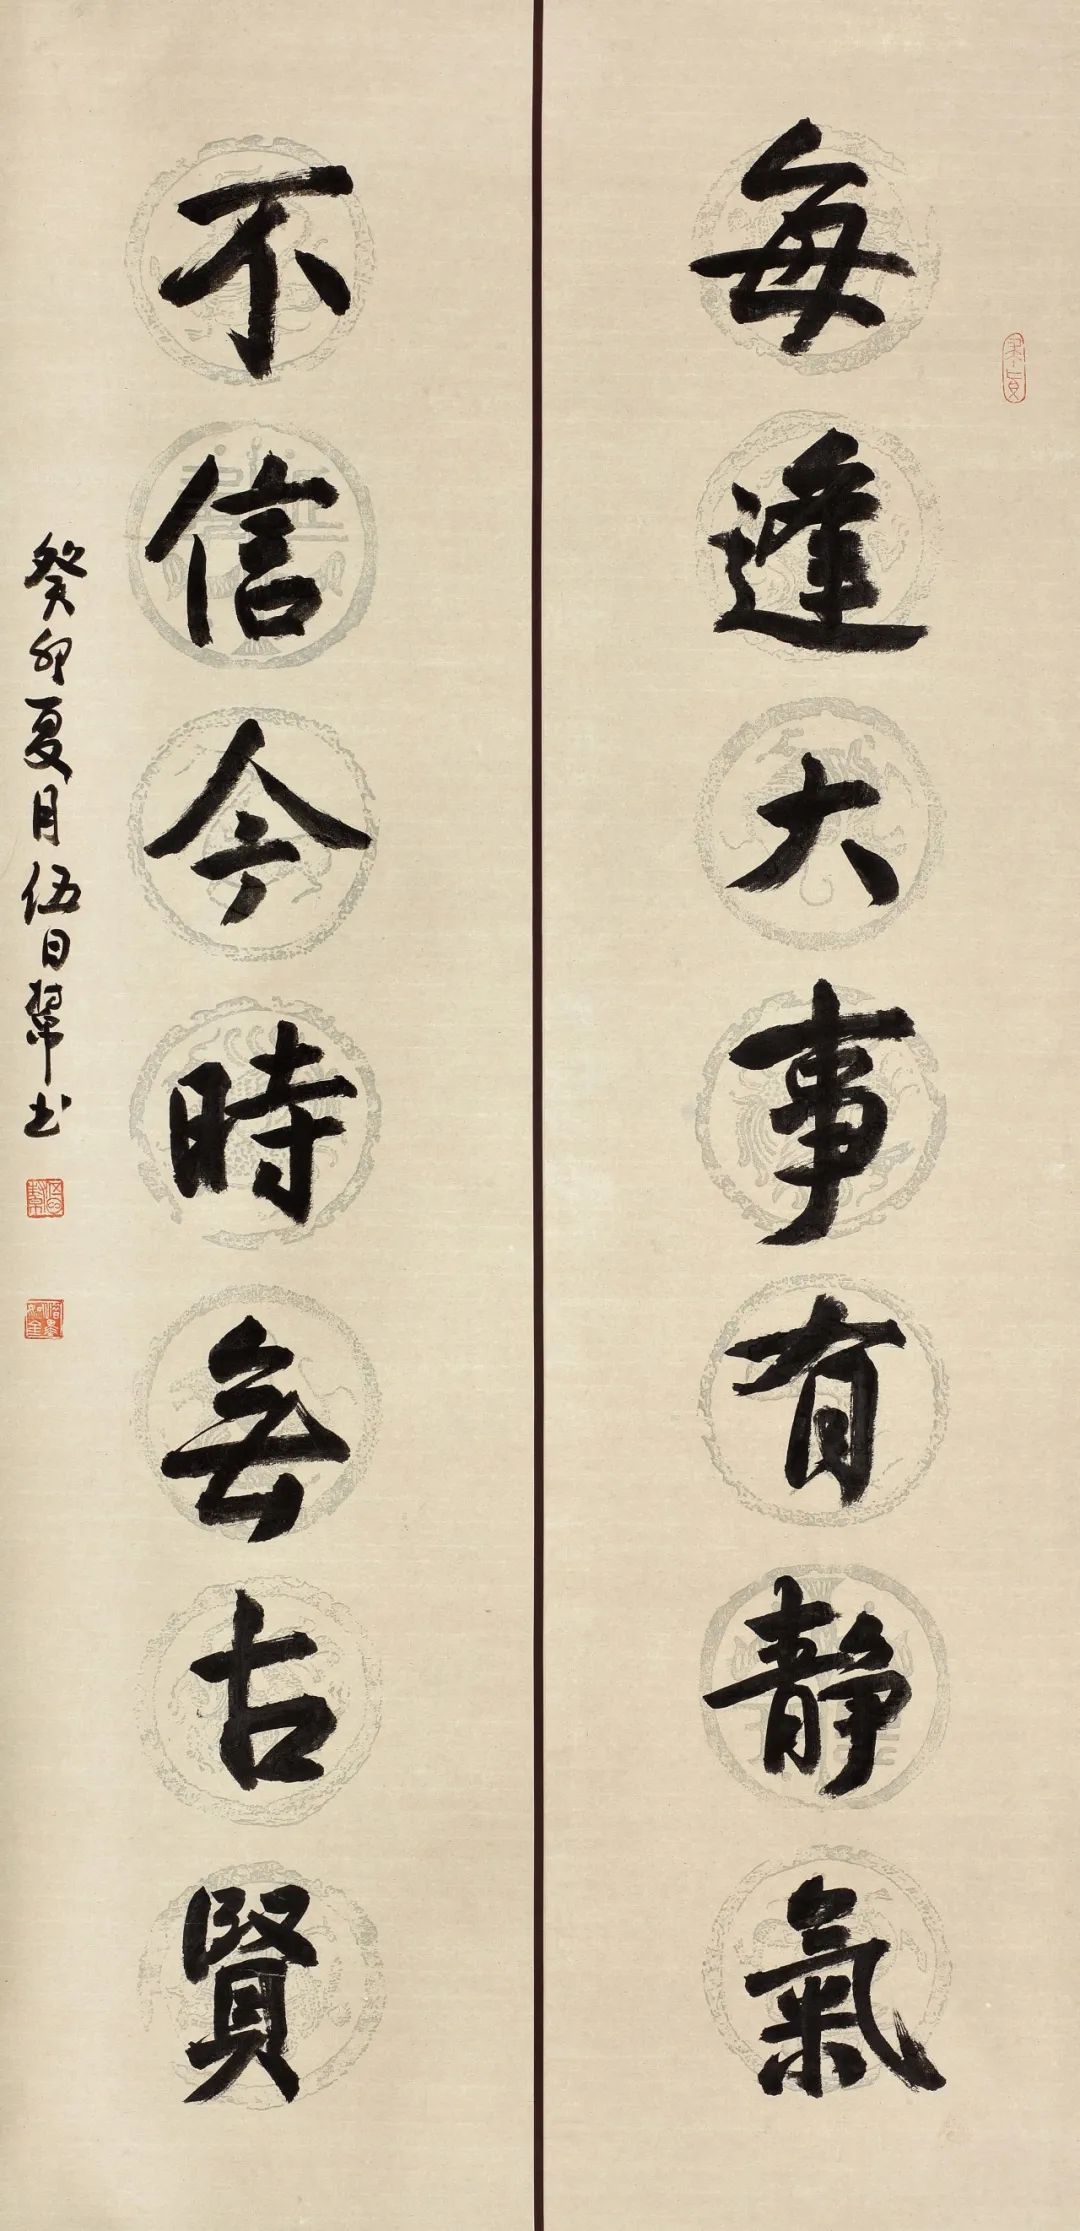 每逢大事有靜氣
不信今時無古賢
癸卯夏月伍日幫书